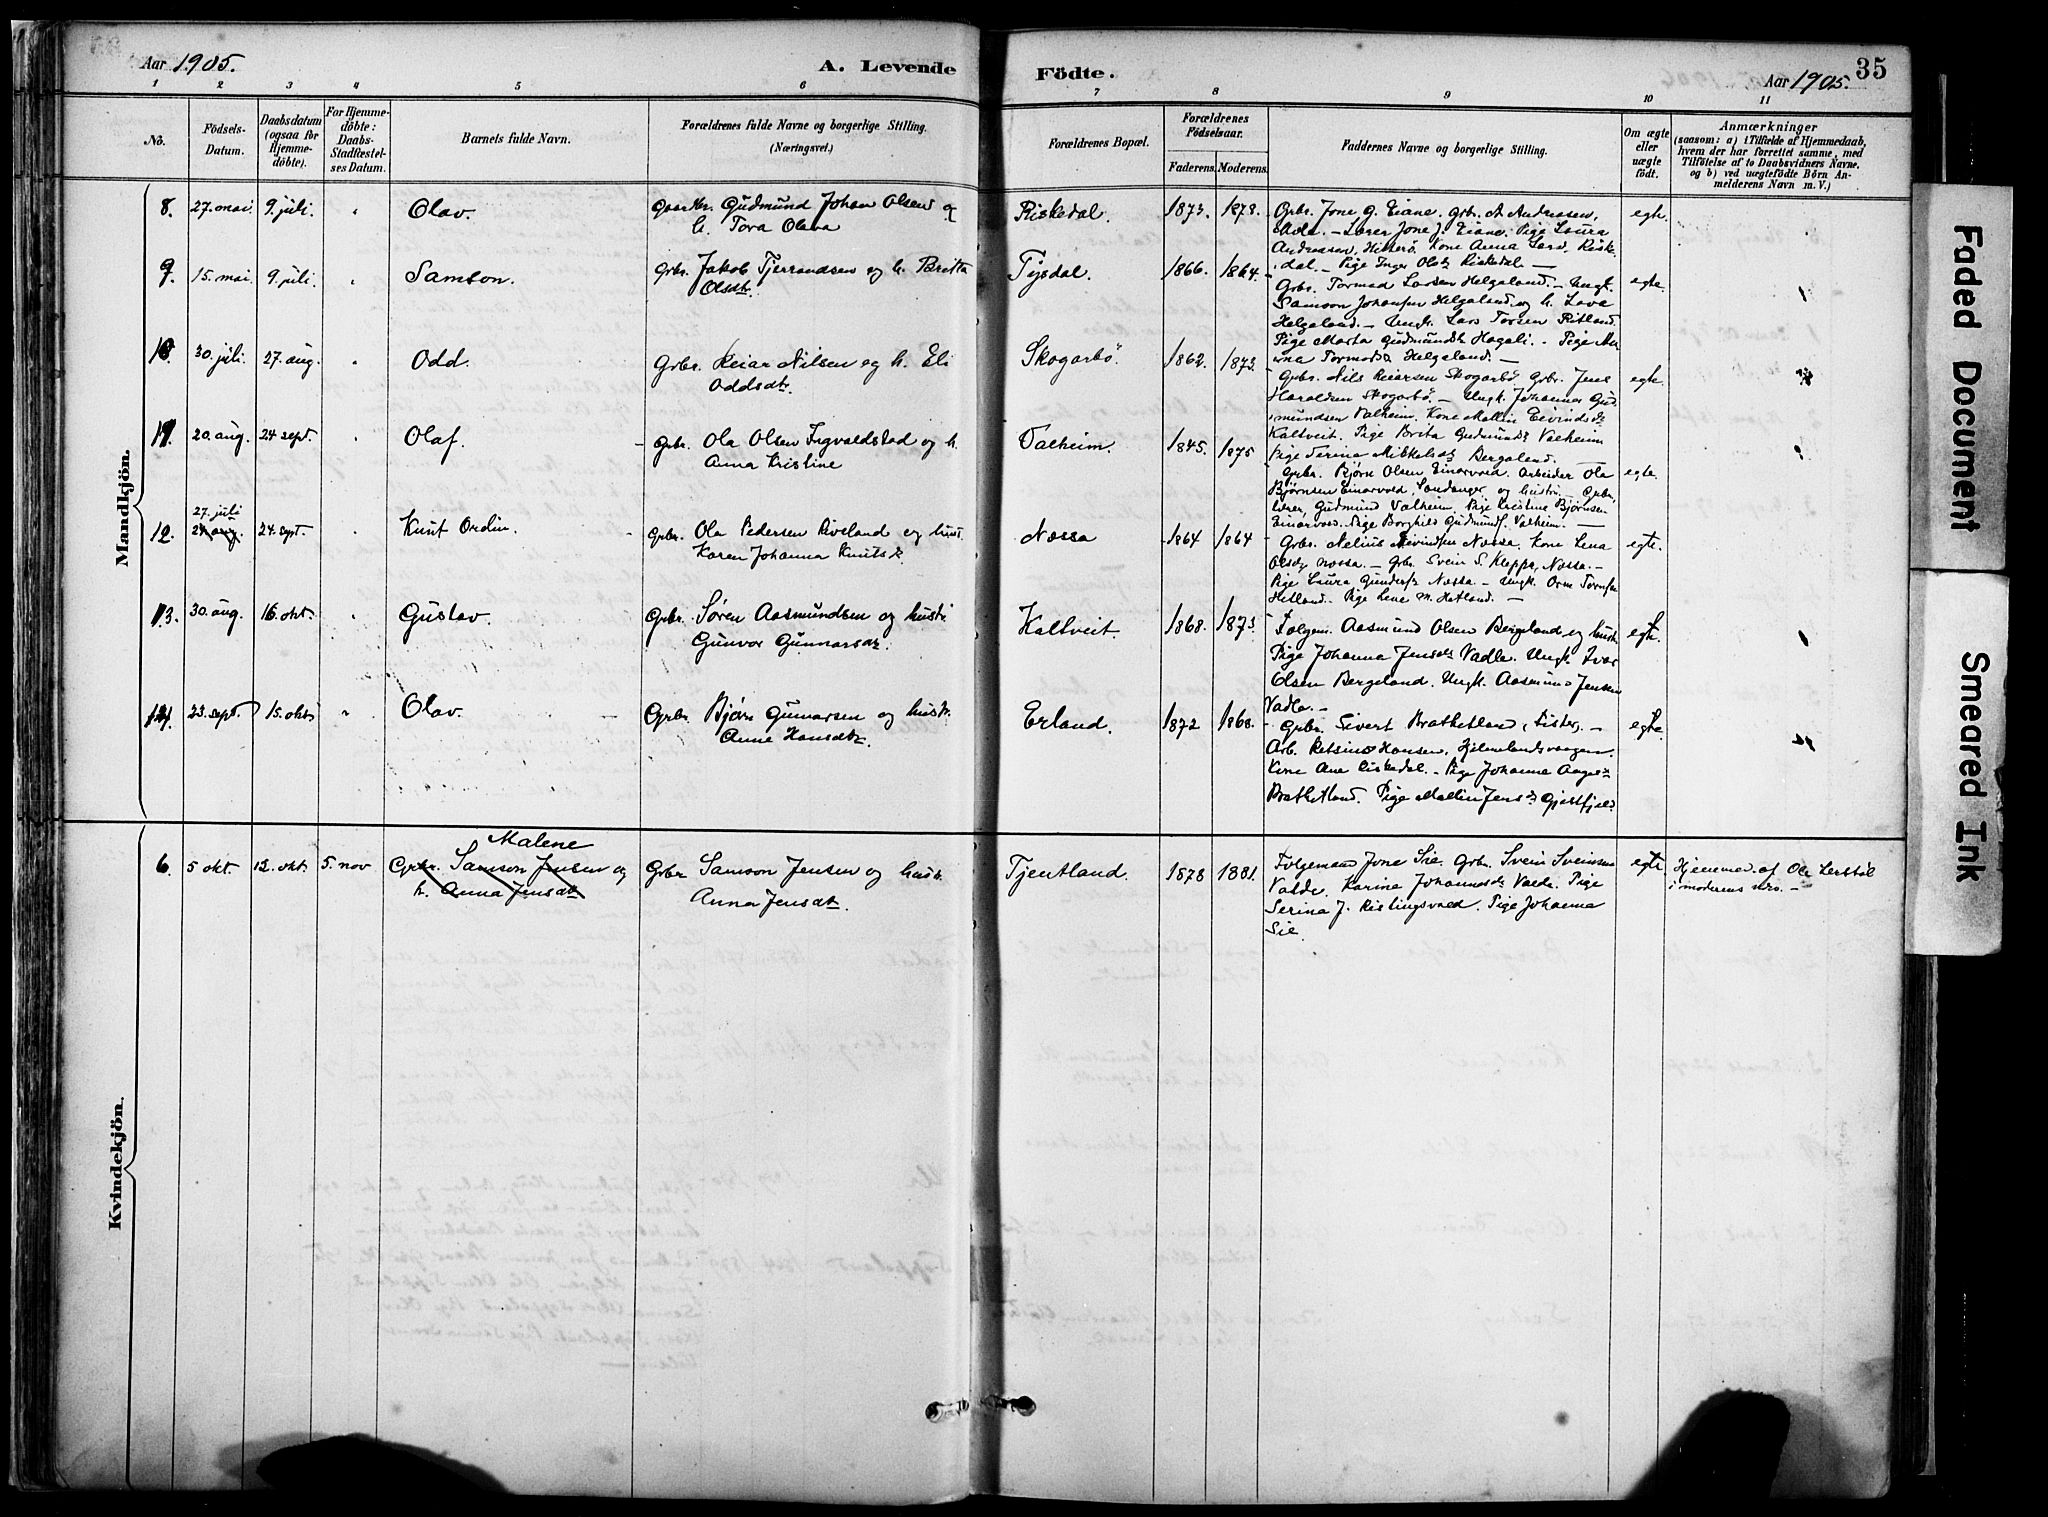 Aar 1905.
A. Levende
Födte.
Aar 1905.
35
1 2 3 4 5 6 7 8 9 10 11
No.
Födsels-
Datum.
Daabsdatum
(ogsaa for
Hjemme-
döbte).
For Hjemme-
döbte:
Daabs-
Stadfæstel-
ses Datum.
Barnets fulde Navn.
Forældrenes fulde Navne og borgerlige Stilling.
(Næringsvei.)
Forældrenes Bopæl.
Forældrenes
Födselsaar.
Faderens. Moderens.
Faddernes Navne og borgerlige Stilling.
Om ægte
eller
uægte
födt.
Anmærkninger
(saasom: a) i Tilfælde af Hjemmedaab,
hvem der har forrettet samme, med
Tilföielse af to Daabsvidners Navne,
og b) ved uægtefödte Börn An-
melderens Navn m. V.)
Mandkjön.
8. 27. mai. 9. juli. " Olav. Gaardbr. Gudmund Johan Olsen og
h. Tora Olava
Riskedal. 1873. 1878.
Grbr. Jone G. Eiane. Grb. A. Andreasen,
Lærer Jone J. Eiane. Pige Laura
Andreasen, Hitterö. Kone Anna Lars. Riske-
dal. - Pige Inger Olsdtr Riskedal. -
egte.
9. 15. mai. 9. juli. " Samson. Grbr. Jakob Tjerrandsen og h. Britta
Olsdtr.
Tysdal. 1866. 1864.
Grbr. Tormod Larsen Helgaland. - Ungk.
Samson Johansen Helgaland og h. Lava
Helgaland. - Ungk. Lars Torsen Ritland.
Pige Marta Gudmundsdtr Hagali. - Pige An-
na Tormodsdtr Helgaland. -
egte.
10. 30. juli. 27. aug. " Odd. Grbr. Reiar Nilsen og h. Eli
Oddsdtr.
Skogarbö 1862. 1873.
Grbr. Nils Reiarsen Skogarbö. Grbr. Jens
Haraldsen Skogarbö. - Ungk. Johannes Gud-
mundsen Valheim. Kone Mallin Eivindsdtr
Kaltveit. Pige Brita Gudmundsdtr Valheim
Pige Serina Mikkelsdtr Bergeland. -
egte.
11. 20. aug. 24 sept. " Olaf. Grbr. Ola Olsen Ingvaldstad og h.
Anna Kristine
Valheim. 1845. 1875
Grbr. Björn Olsen Einarvold. Arbeider Ola
Björnsen Einarvold, Sandanger og hustru. - Grbr.
lærer, Gudmund Valheim. Pige Kristine Björnsen
Einarvold. Pige Borghild Gudmunds. Valheim. -
egte.
12. 27. juli 24 aug. 24. sept. " Knut Ordin. Grbr. Ola Pedersen Riveland og hust.
Karen Johanna Knutsdtr
Nessa 1864 1864
Grbr. Nelius Eivindsen Nessa. Kone Lena
Olsdtr Nessa. - Grbr Svein S. Kleppa, Nessa. -
Pige Laura Gundersdtr Nessa. - Ungk. Orm Tormsen
Hetland. Pige Lene M. Hetland. -
egte.
13. 30. aug. 16. okt. " Gustav. Grbr. Sören Aasmundsen og hustr.
Gunvor Gunnarsdtr.
Kaltveit. 1868. 1873.
Folgem. Aasmund Olsen Bergeland og hustr.
Pige Johanna Jensdtr Vadla. Ungk. Ivar
Olsen Bergeland. Ungk. Aasmund Jensen
Vadla. -
egte.
14. 23. sept. 15. okt. " Olav. Grbr. Björn Gunnarsen og hustr.
Anne Hansdtr.
Erland. 1872 1868.
Grbr. Sivert Brathetland, Fister, -
Arb. Retsius Hansen, Hjelmelandsvaagen.
Kone Ane Riskedal. - Pige Johanna Aagesdtr
Brathetland. Pige Mallin Jensdtr Gjilstfjeld
egte.
Kvindekjön.
6. 5 okt. 12. okt. 5. nov Malene
Grbr. Samson Jensen og
h. Anna Jensdtr
Grbr Samson Jensen og hustr.
Anna Jensdtr.
Tjentland. 1878 1881.
Folgemand Jone Sie. Grbr. Svein Sveinsen
Valde. Karina Johannesdtr Valde. Pige
Serina J. Rislingsvold. Pige Johanna
Sie.
egte
Hjemmed. af Ole Lerstöl
i moderens nærv. -
Faded Document
Smeared Ink